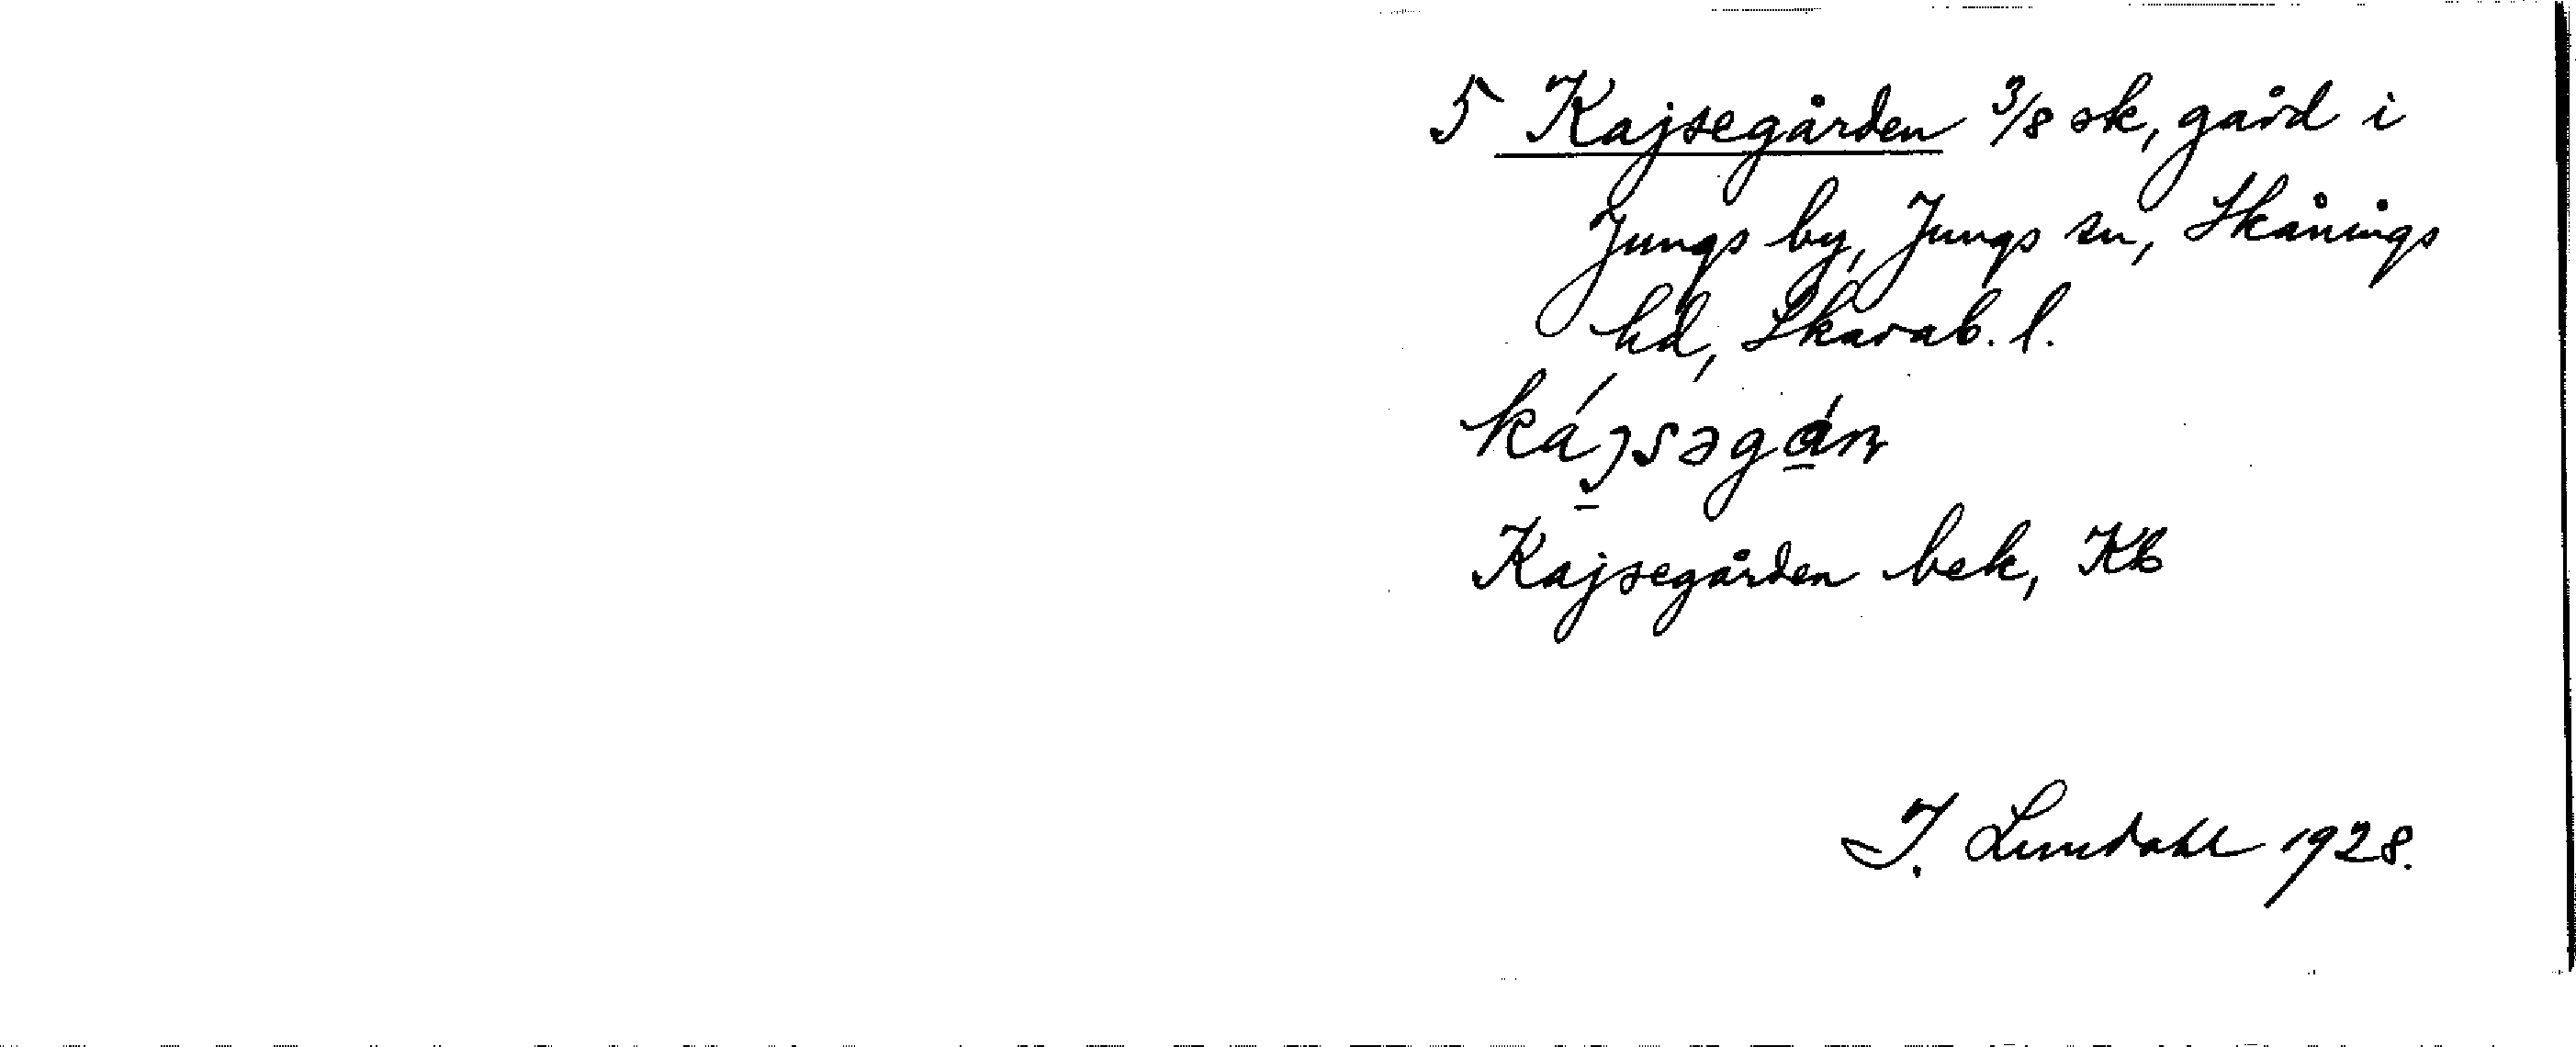 5 Kajsegården 3/8 sk, gård i
Jungs by, Jungs sn, Skånings
hd, Skarab. l.
kájsəgán
Kajsegården bek, Kb
I. Lundahl 1928.